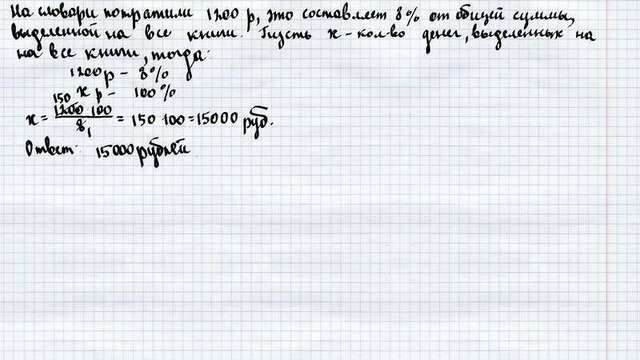 На словари потратили 1200 р, это составляет 8% от общей суммы,
выделенной на все книги. Пусть х - кол-во денег, выделенных на
на все книги, тогда:
1200 р - 8%
х р - 100%
150
х = 1200 · 100 / 8 1 = 150 · 100 = 15000 руб.
Ответ: 15000 рублей